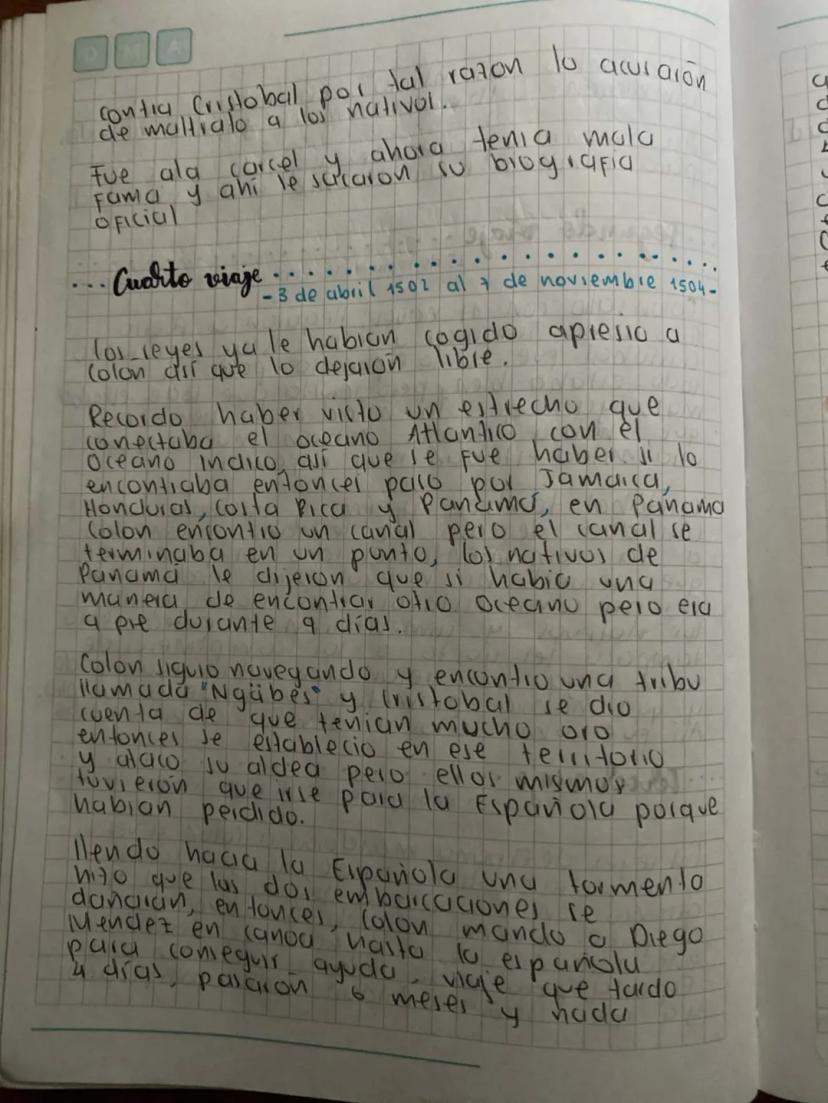 D M A
contra Cristobal por tal razon lo acusaron
de maltrato a los nativos.
Fue ala carcel y ahora tenia mala
fama y ahi le sacaron su biografia
oficial
... Cuarto viaje ...................
- 3 de abril 1502 al 7 de noviembre 1504-
los reyes ya le habian cogido apresio a
Colon asi que lo dejaron libre.
Recordo haber visto un estrecho que
conectaba el oceano Atlantico con el
Oceano Indico, asi que se fue haber si lo
encontraba entonces paso por Jamaica,
Honduras, Costa Rica y Panama, en Panama
Colon encontro un canal pero el canal se
terminaba en un punto, los nativos de
Panama le dijeron que si habia una
manera de encontrar otro oceano pero era
a pie durante 9 días.
Colon siguio navegando y encontro una tribu
llamada "Ngäbes" y Cristobal se dio
cuenta de que tenian mucho oro
entonces se establecio en ese territorio
y ataco su aldea pero ellos mismos
tuvieron que irse para la Española porque
habian perdido.
llendo hacia la Española una tormenta
hizo que las dos embarcaciones se
dañaran, entonces, Colon mando a Diego
Mendez en canoa hasta la española
para conseguir ayuda, viaje que tardo
4 días, pasaron 6 meses y nada